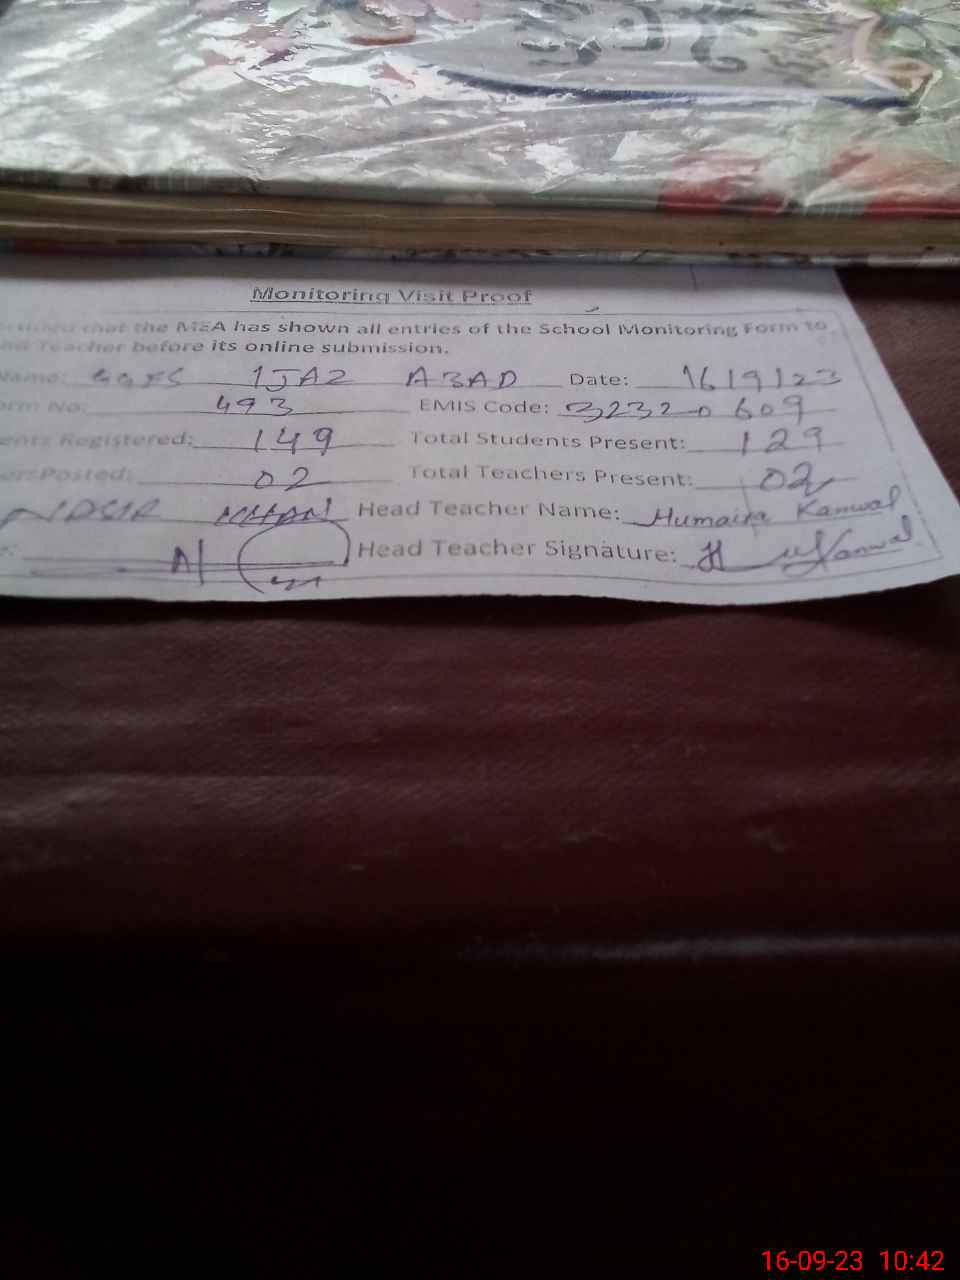 Monitoring Visit Proof
that the MEA has shown all entries of the School Monitoring Form to
Teacher before its online submission.
Name: GGES IJAZ ABAD Date: 16/9/23
Form No: 493 EMIS Code: 32320609
ents Registered: 149 Total Students Present: 129
ers Posted: 02 Total Teachers Present: 02
KHAN Head Teacher Name: Humaira Kanwal
Head Teacher Signature: H Kanwal
16-09-23 10:42